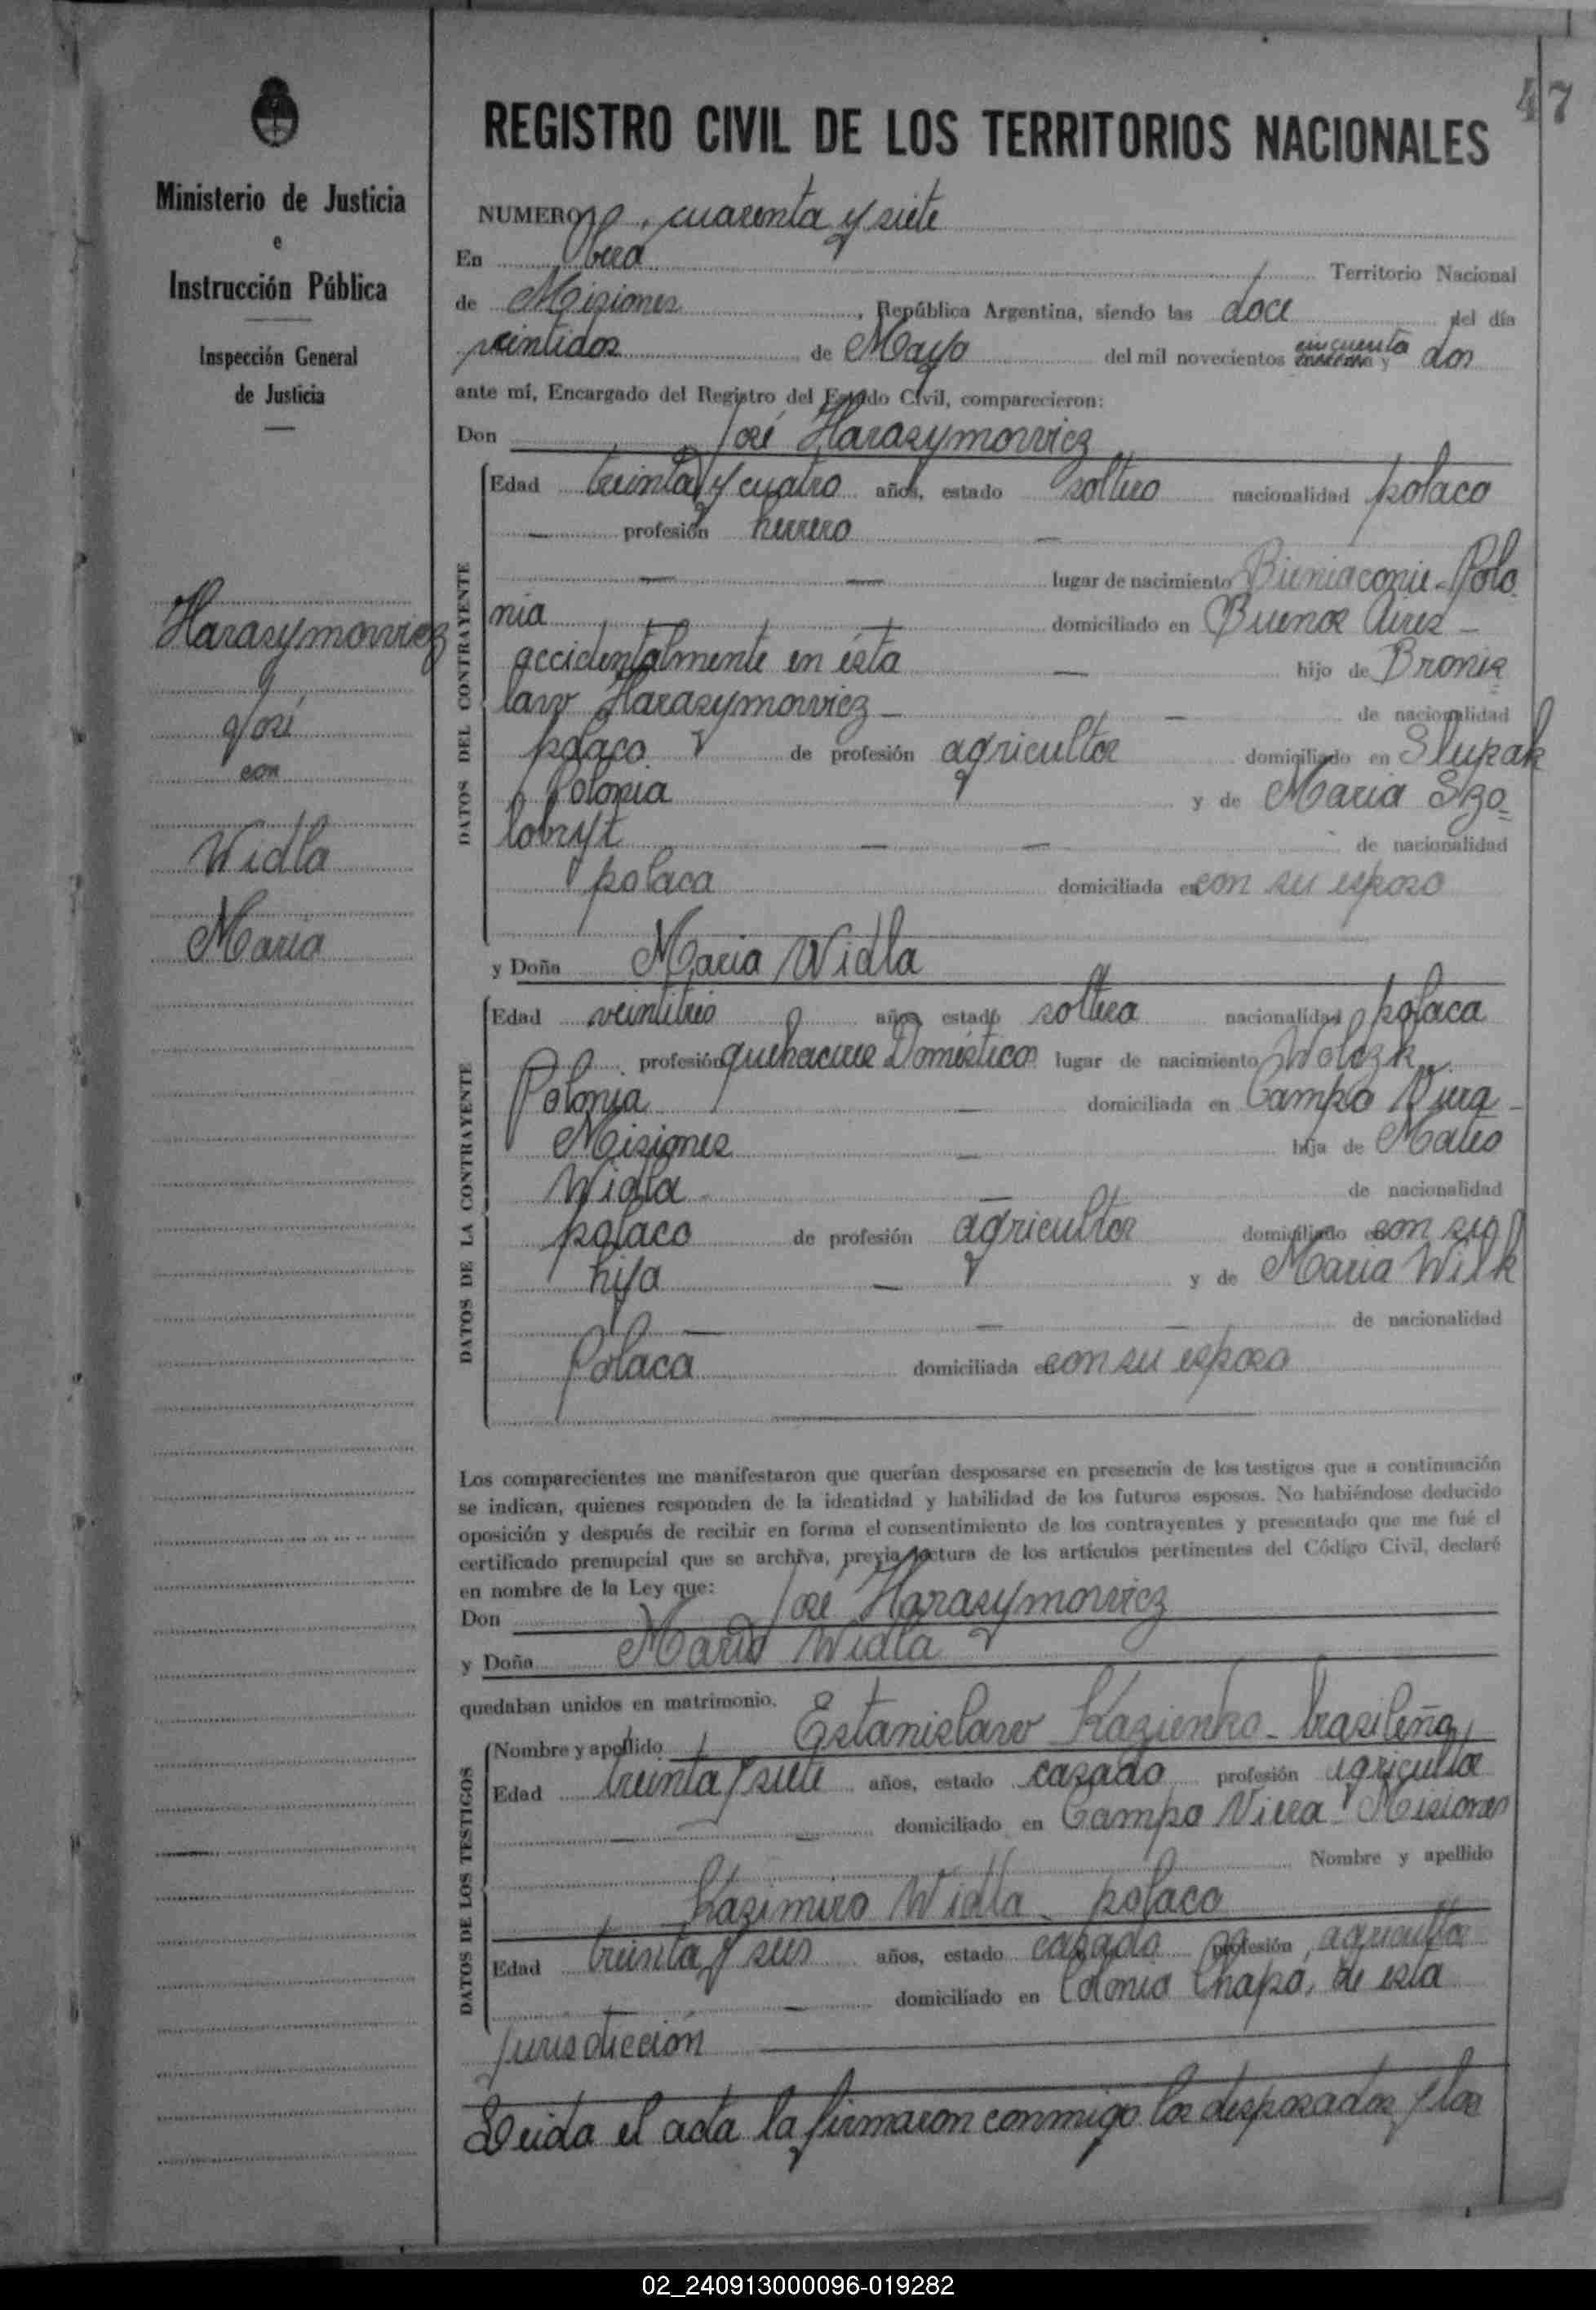 47
REGISTRO CIVIL DE LOS TERRITORIOS NACIONALES
Ministerio de Justicia
e
Instrucción Pública
Inspección General
de Justicia
Harasymowicz
José
con
Widla
Maria
NUMERO cuarenta y siete
En Oberá Territorio Nacional
de Misiones, República Argentina, siendo las doce del día
veintidos de Mayo del mil novecientos cincuenta y dos
ante mí, Encargado del Registro del Estado Civil, comparecieron:
Don José Harasymowicz
DATOS DEL CONTRAYENTE
Edad treinta y cuatro años, estado soltero nacionalidad polaco
profesión herrero
lugar de nacimiento Bieniaconie - Polo
nia domiciliado en Buenos Aires -
accidentalmente en ésta hijo de Bronis
law Harasymowicz - de nacionalidad
polaco de profesión agricultor domiciliado en Slupak
Polonia y de Maria Szo
lobryt de nacionalidad
polaca domiciliada en con su esposo
y Doña Maria Widla
DATOS DE LA CONTRAYENTE
Edad veintitres años estado soltera nacionalidad polaca
profesión quehaceres Domésticos lugar de nacimiento Wolczk
Polonia domiciliada en Campo Viera -
Misiones hija de Mateo
Widla de nacionalidad
polaco de profesión agricultor domiciliado en con su
hija y de Maria Wilk
de nacionalidad
Polaca domiciliada en con su esposo
Los comparecientes me manifestaron que querían desposarse en presencia de los testigos que a continuación
se indican, quienes responden de la identidad y habilidad de los futuros esposos. No habiéndose deducido
oposición y después de recibir en forma el consentimiento de los contrayentes y presentado que me fué el
certificado prenupcial que se archiva, previa lectura de los artículos pertinentes del Código Civil, declaré
en nombre de la Ley que:
Don José Harasymowicz
y Doña Maria Widla
quedaban unidos en matrimonio.
DATOS DE LOS TESTIGOS
Nombre y apellido Estanislaw Kazienko - brasileño
Edad treinta y siete años, estado casado profesión agricultor
domiciliado en Campo Viera - Misiones
Nombre y apellido
Kazimiro Widla - polaco
Edad treinta y seis años, estado casado profesión agricultor
domiciliado en Colonia Chapá, de esta
jurisdicción
Leida el acta la firmaron conmigo los desposados y los
02_240913000096-019282